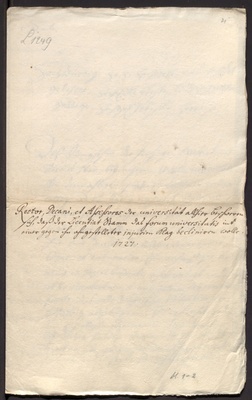 L1249
Rector, Decani, et Assessores der universität allhier beschweren
sich, daß der Licentiat Stamm das forum universitatis mit
einer gegen ihn angestellter injurien Klag decliniren wolle.
1727.